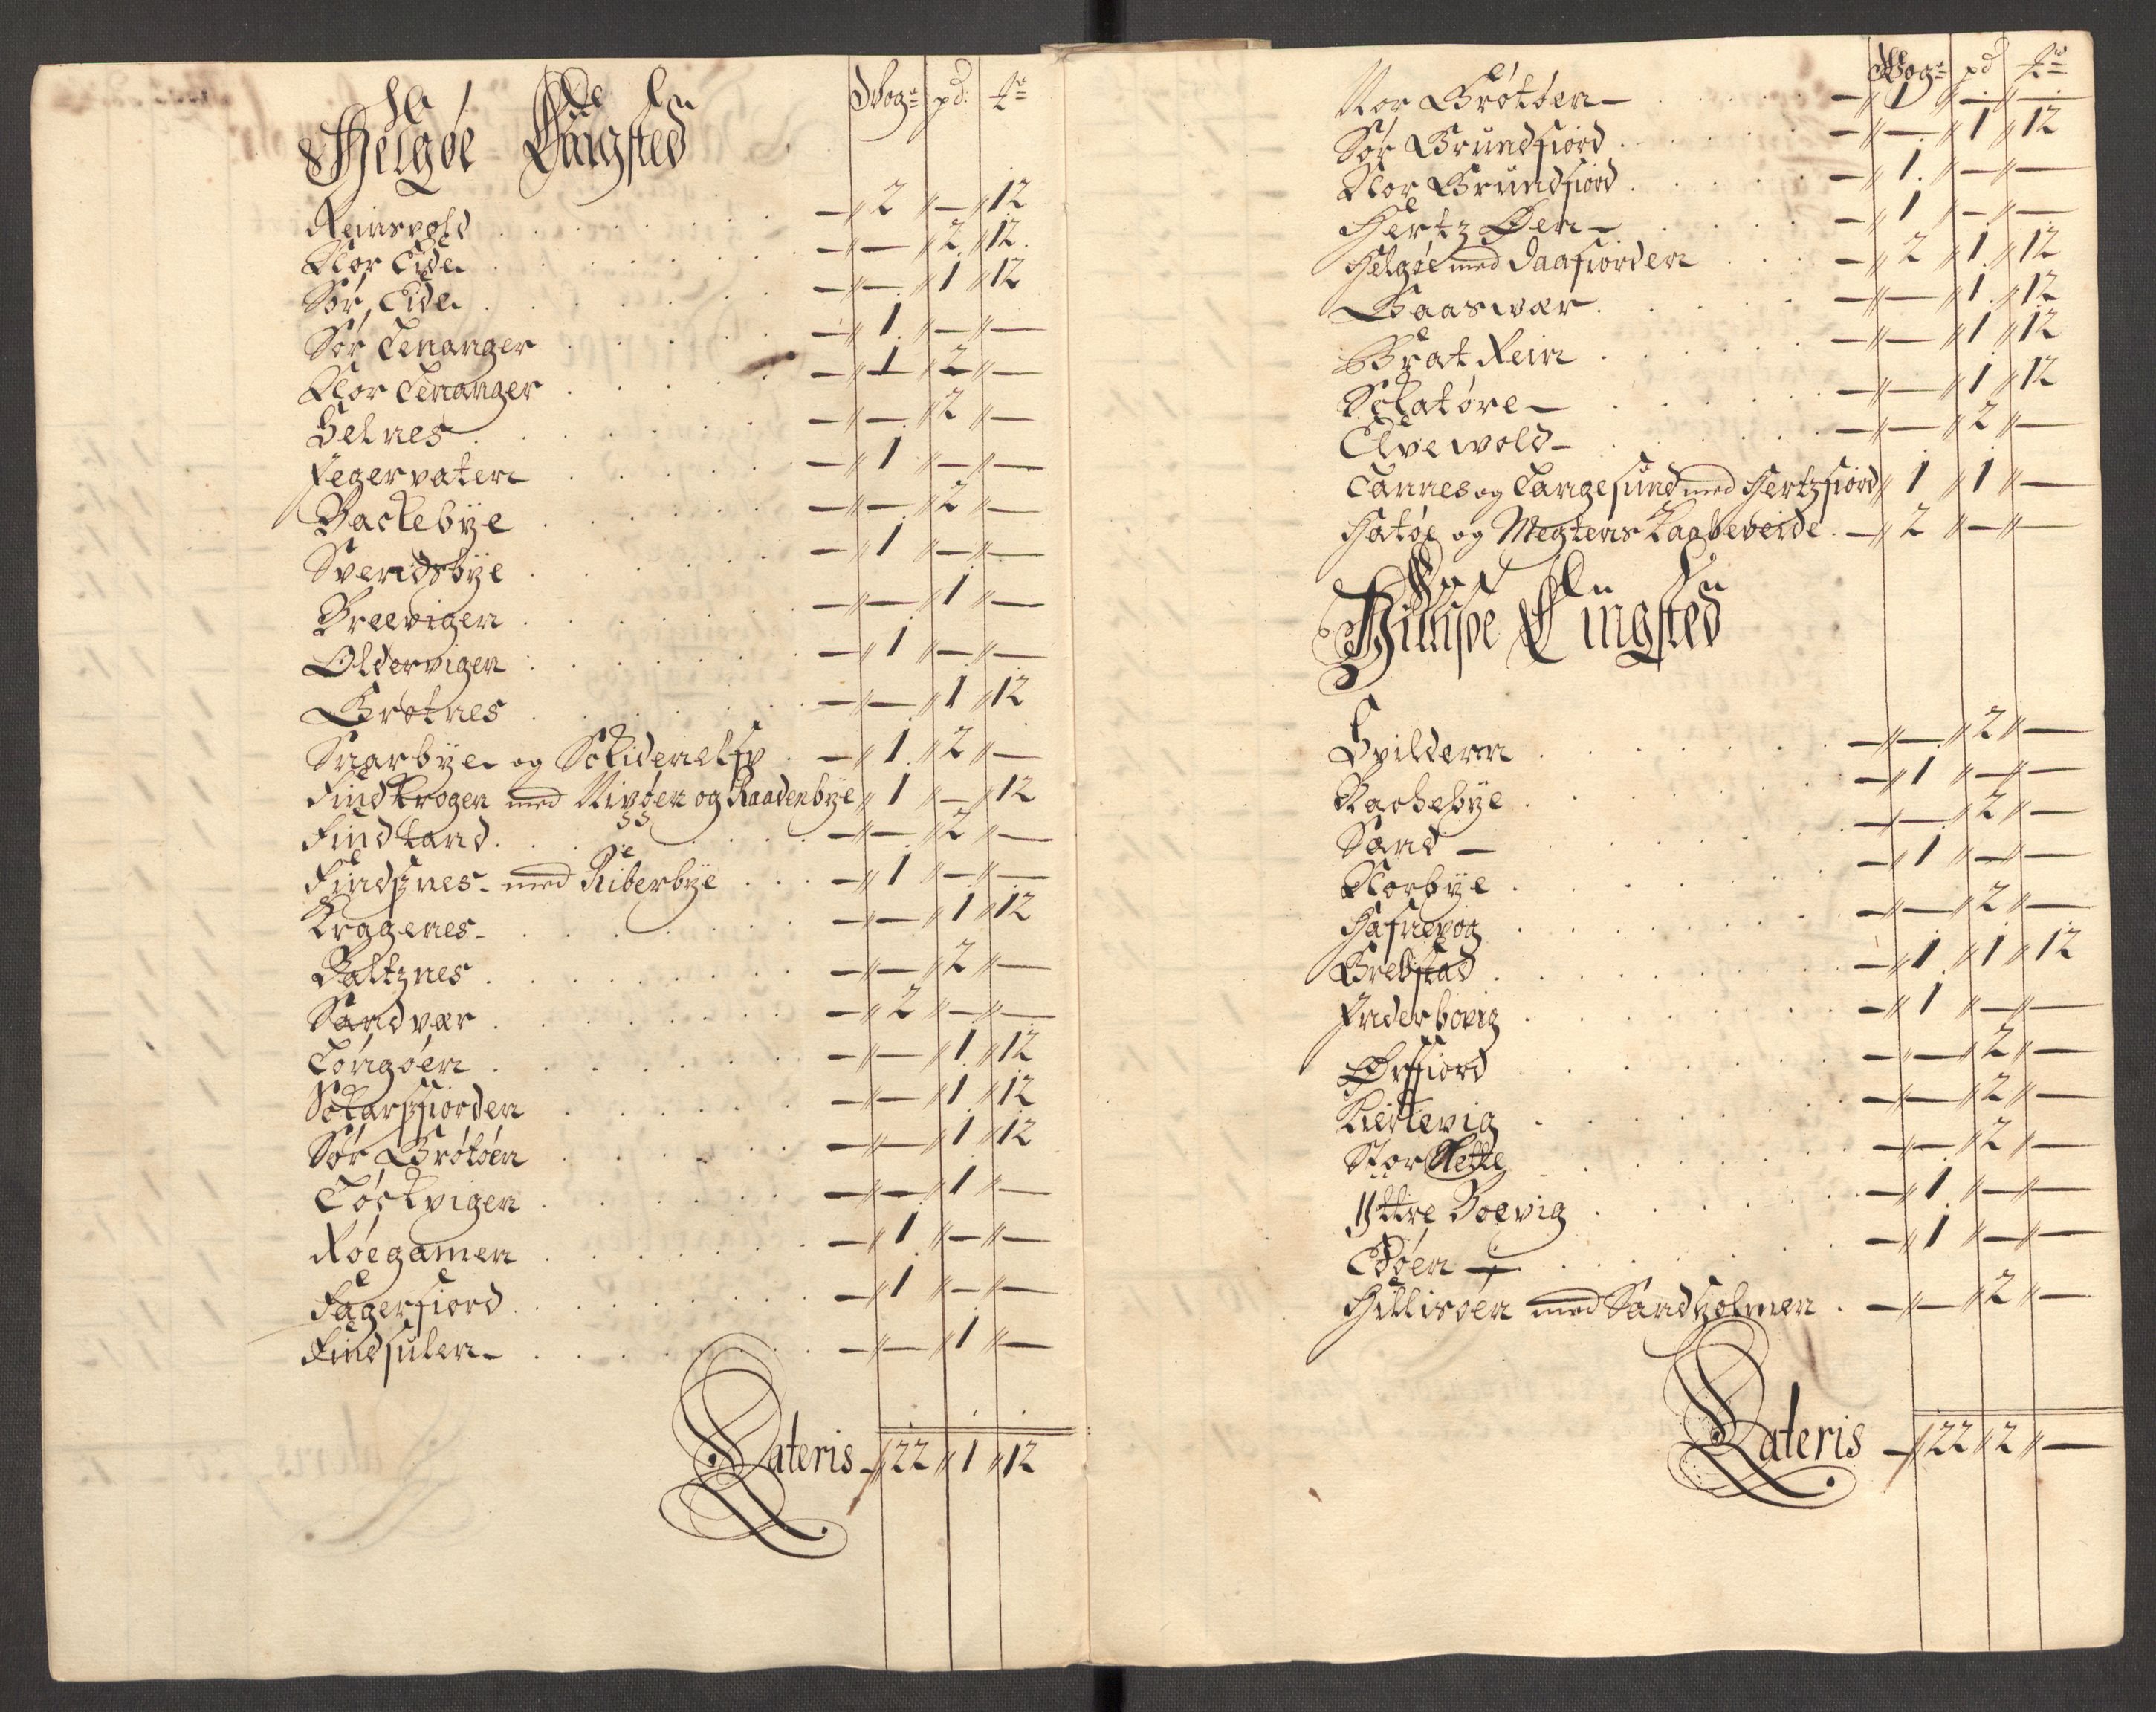 Helgøe Tingsted
Wog: pd: ℔
Reinsvold . . . — 2 — 12
Nor Eide . . . — — 2 12
Sør Eide . . . — — 1 12
Sør Lenanger . . . — 1 — —
Nor Lenanger . . . — 1 2 —
Helnes . . . — — 2 —
Jegervaten . . . — 1 — —
Backebÿe . . . — — 2 —
Svendsbÿe . . . — 1 — —
Breevigen . . . — — 1 —
Oldervigen . . . — 1 — —
Grøtnes . . . — — 1 12
Snarbÿe og Skidenelfv . — 1 2 —
Findkrogen med Nivøen og Raadenbÿe 1 — 12
Findland . . . — — 2 —
Findsnes med Riberbÿe . . . — 1 — —
Kraggenes . . . — — 1 12
Daltznes . . . — — 2 —
Sandvær . . . — 2 — —
Longøen . . . — — 1 12
Skarsfiorden . . . — — 1 12
Sør Grøtøen . . . — — 1 12
Løckvigen . . . — — 1 —
Røegamen . . . — 1 — —
Fagerfiord . . . — 1 — —
Findsulen . . . — — 1 —
Lateris 22 1 12
Wog: pd ℔
Nor Grøtøen . . . — 1 — —
Sør Grundfiord . . . — — 1 12
Nor Grundfiord . . . — 1 — —
Hertz Øen . . . — 1 — —
Helgøe med Daafiorden . . . — 2 1 12
Gaaswær . . . — — 1 12
Brat Rein . . . — — 1 12
Skatøre . . . — — 1 12
Elvewold . . . — — 2 —
Lannes og Langesund med Hertzfiord 1 1 —
Hatøe og Megtens Kaabeveide . — 2 — —
Hillisøe Tingsted
Gvilderen . . . — — 2 —
Bachebÿe . . . — 1 — —
Sand . . . — — 2 —
Norbÿe . . . — 1 — —
Hafnevog . . . — — 2 —
Brebstad . . . — 1 1 12
Inderboevig . . . — 1 — —
Ørfiord . . . — — 2 —
Kiertevig . . . — — 2 —
Stor Slette . . . — — 2 —
Yttre Boevig . . . — 1 — —
Edøen . . . — 1 — —
Hillisøen med Sandholmen . — — 2 —
Lateris — 22 2 —